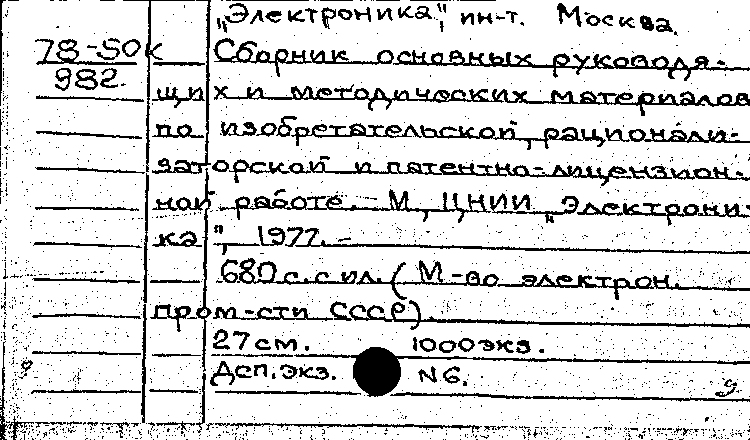 „Электроника", ин-т. Москва.
78-50к
982.
Сборник основных руководя-
щих и методических материалов
по изобретательской, рационали-
заторской и патентно-лицензион-
ной работе. – М, ЦНИИ „Электрони-
ка", 1977. –
680 с. с ил. (М-во электрон.
пром-сти СССР).
27 см. 1000 экз.
Дсп. экз. N6.